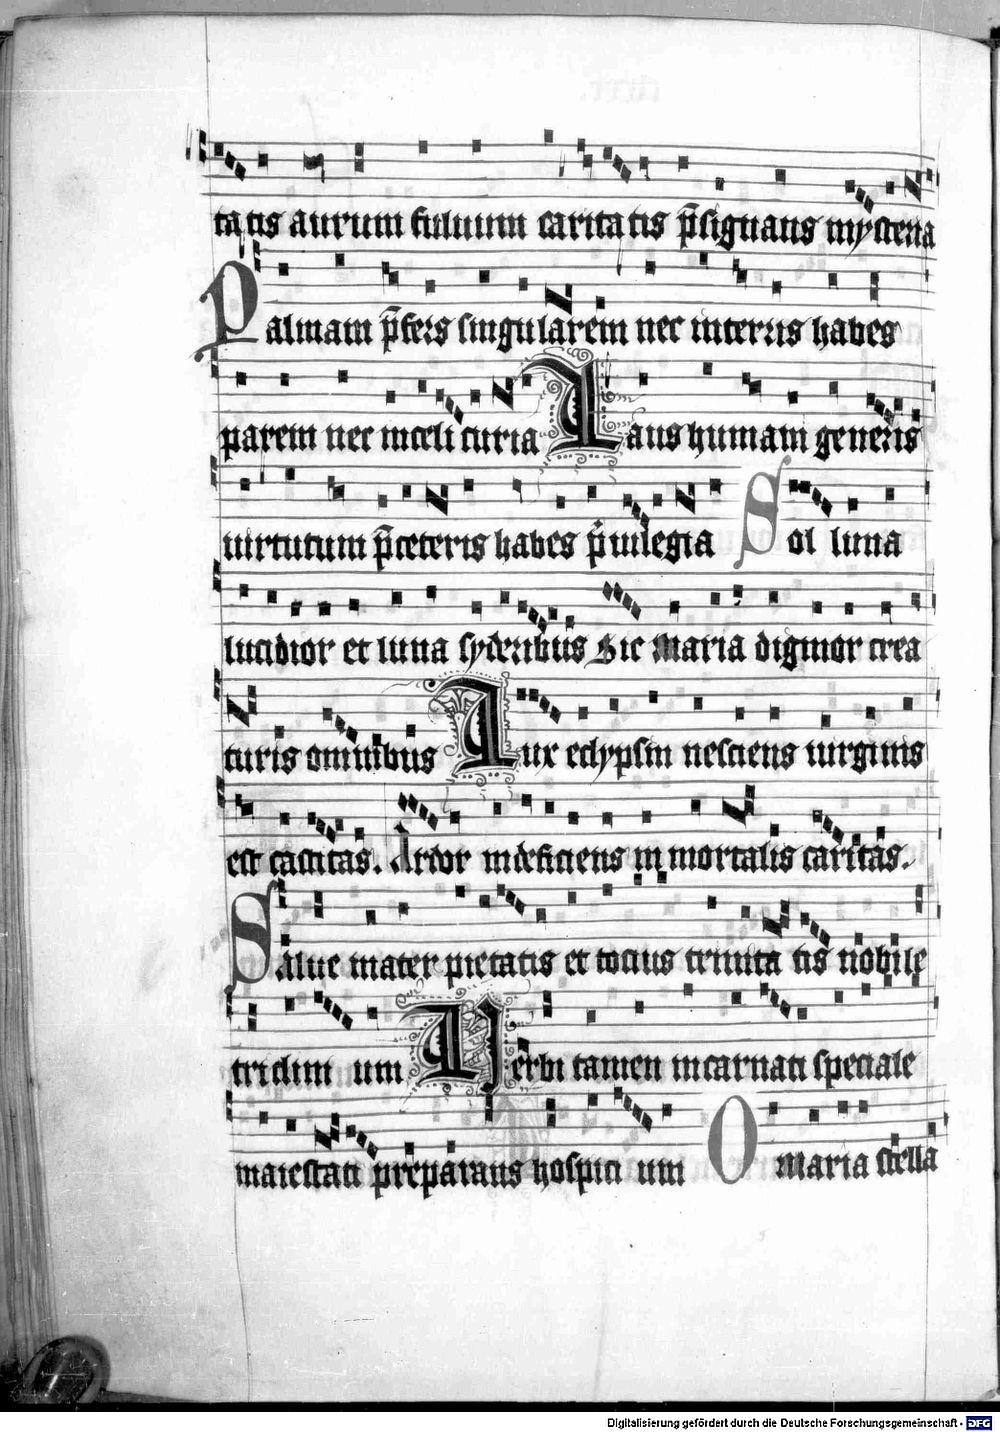 ta tis aurum fuluum carita tis p̄signans mysteria
Palmam p̄fers singularem nec interris habes
parem nec inceli curia Laus humani generis
uirtutum p̄ceteris habes p̄uilegia Sol luna
lucidior et luna syderibus Sic Maria dignior crea
turis omnibus Lux eclypsin nesciens uirginis
est castitas. Ardor indeficiens inmortalis caritas.
Salue mater pietatis et tocius trinita tis nobile
triclini um Verbi tamen incarnati speciale
maiestati preparans hospici um O maria stella
Digitalisierung gefördert durch die Deutsche Forschungsgemeinschaft - DFG